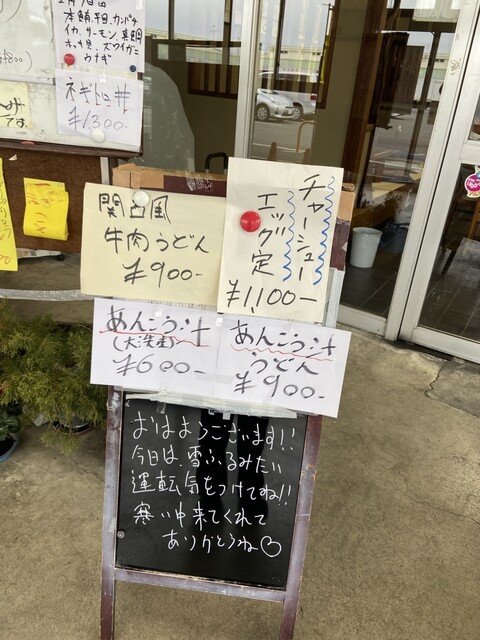 本鮪、平目、カンパチ
イカ、サーモン、真鯛
ホッキ貝、ズワイガニ
ウナギ
ネギトロ丼
¥1,300-
です。
関西風
牛肉うどん
¥900-
チャーシュー
エッグ定
¥1,100-
あんこう汁
(大洗産)
¥600-
あんこう汁
うどん
¥900-
おはようございます!!
今日は、雪ふるみたい
運転気をつけてね!!
寒い中来てくれて
ありがとうね♡